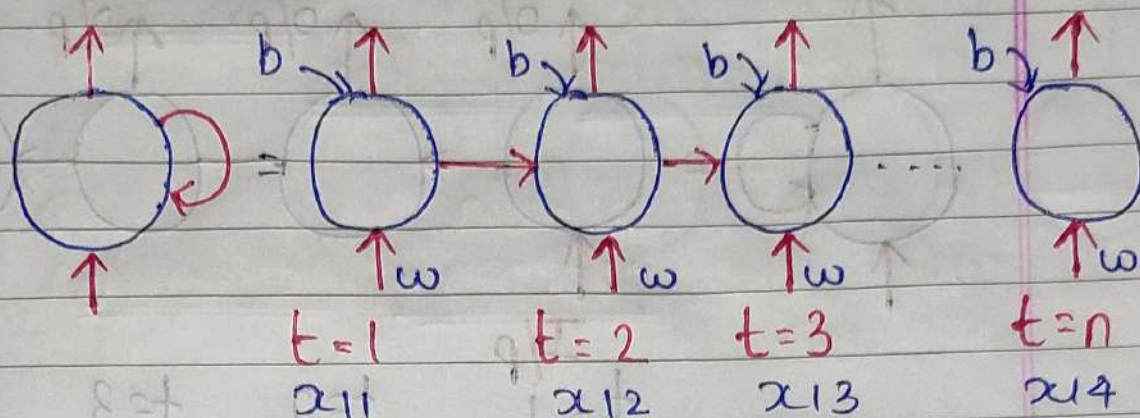 b b b b
=
w w w w
t=1 t=2 t=3 .... t=n
x11 x12 x13 x14